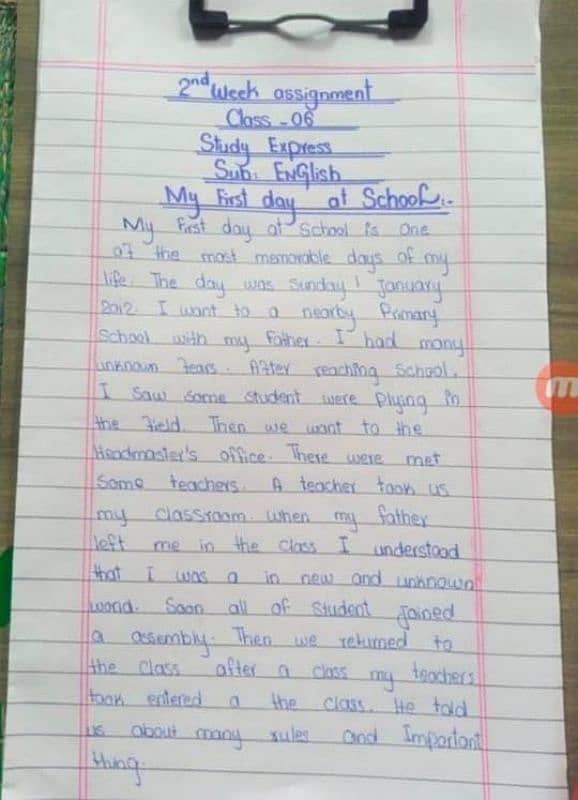 2nd Week assignment
Class - 06
Study Express
Sub: EnGlish
My First day at School:-
My First day at School is One
of the most memorable days of my
life. The day was Sunday 1 January
2012. I want to a nearby Primary
School with my Father. I had many
unknown Fears. After reaching School,
I Saw Some Student were Plying in
the Field. Then we want to the
Headmaster's office. There were met
Some teachers. A teacher took us
my classroom. when my father
left me in the Class I understood
that I was a in new and unknown
world. Soon all of Student Joined
a assembly. Then we returned to
the class after a class my teachers
took entered a the class. He told
us about many rules and Important
thing.
m